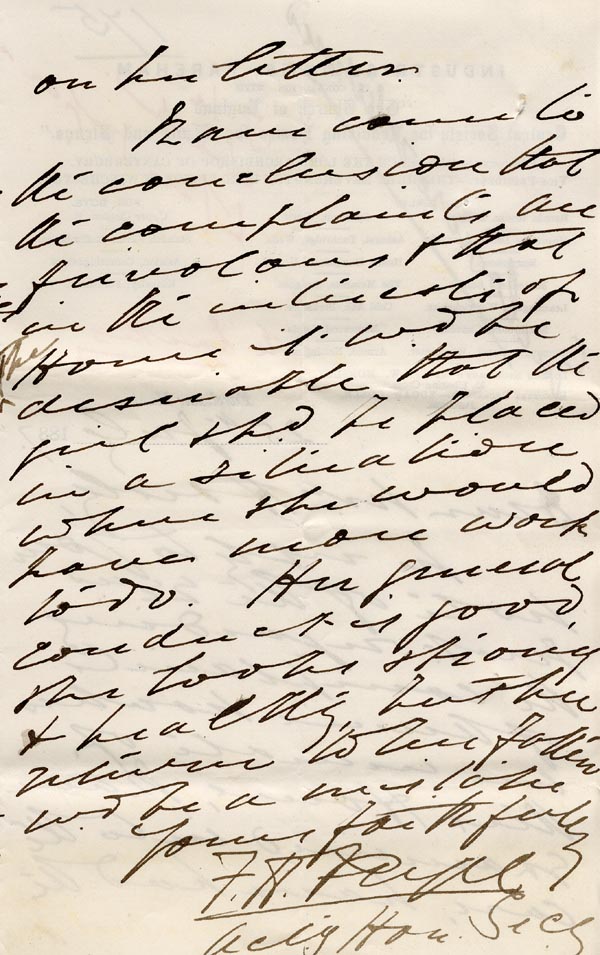 on her letter.
I have come to
the conclusion that
the complaints are
frivolous & that
in the interests of
the Home it wd be
desirable that the
girl shd be placed
in a situation
where she would
have more work
to do. Her general
conduct is good,
she looks strong
& healthy, but her
return to her father
wd be a mistake
Yours faithfully
F. H.
Actg Hon. Secy